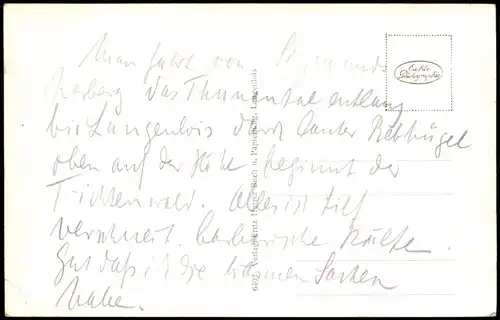 Man fährt von Sigmunds
herberg das Thumental entlang
bis Langenlois durch lauter Rebhügel
oben auf der Höhe beginnt der
Fichtenwald. Alles ist tief
verschneit. Barbarische Kälte.
Gut daß ich die warmen Sachen
habe.
Echte
Photographie
Verlag Fritz Buch u. Papierhdlg. Langenlois